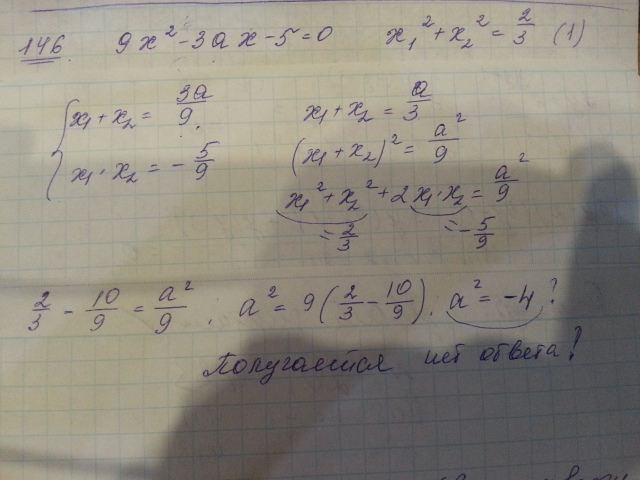 146. 9x² - 3ax - 5 = 0 x₁² + x₂² = 2/3 (1)
x₁ + x₂ = 3a/9.
x₁ · x₂ = - 5/9
x₁ + x₂ = a/3
(x₁ + x₂)² = a²/9
x₁² + x₂² + 2x₁·x₂ = a²/9
= 2/3 = - 5/9
2/3 - 10/9 = a²/9 ; a² = 9(2/3 - 10/9). a² = -4?
Получается нет ответа?